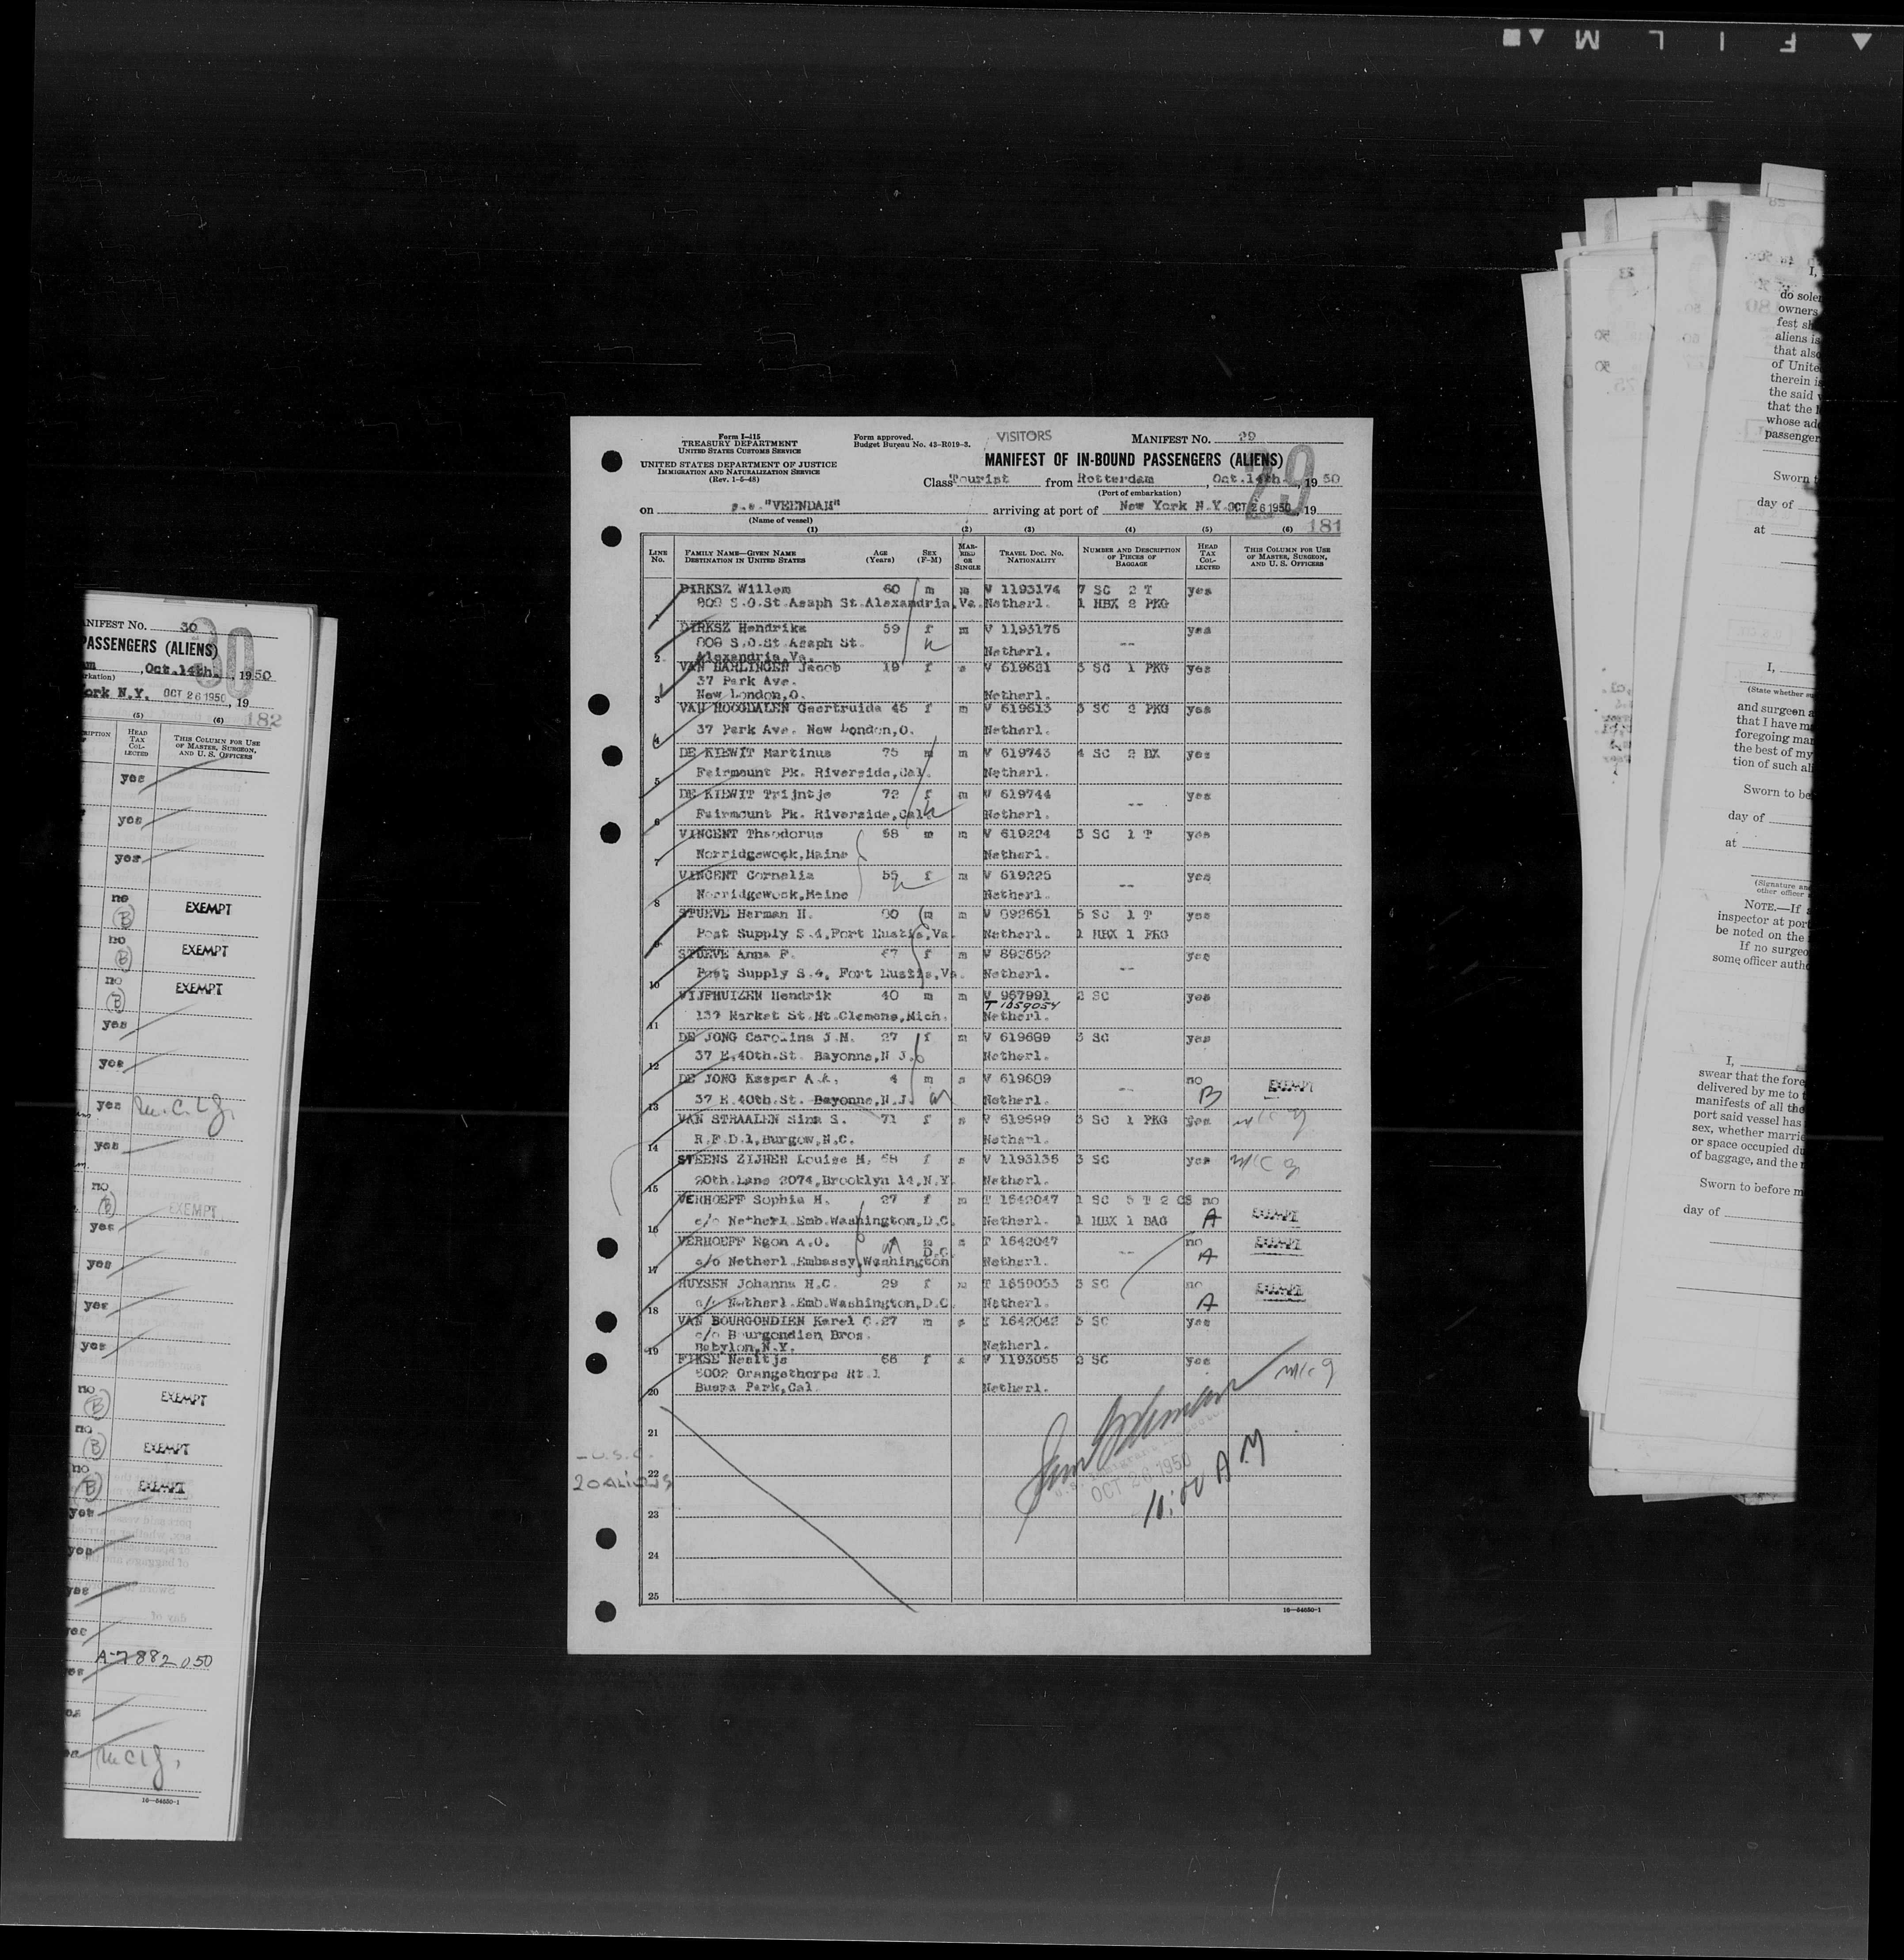 FILM
Form I-415
TREASURY DEPARTMENT
UNITED STATES CUSTOMS SERVICE
UNITED STATES DEPARTMENT OF JUSTICE
IMMIGRATION AND NATURALIZATION SERVICE
(Rev. 1-5-48)
Form approved.
Budget Bureau No. 43-R019-3.
VISITORS
MANIFEST NO. 29
29
MANIFEST OF IN-BOUND PASSENGERS (ALIENS)
Class Tourist from Rotterdam, Oct.14th., 1950
(Port of embarkation)
on s.s. "VEENDAM" arriving at port of New York N.Y. OCT 26 1950, 19
(Name of vessel)
181
(1) (2) (3) (4) (5) (6)
LINE NO. FAMILY NAME—GIVEN NAME DESTINATION IN UNITED STATES AGE (Years) SEX (F-M) MARRIED OR SINGLE TRAVEL DOC. NO. NATIONALITY NUMBER AND DESCRIPTION OF PIECES OF BAGGAGE HEAD TAX COLLECTED THIS COLUMN FOR USE OF MASTER, SURGEON, AND U. S. OFFICERS
DIRKSZ Willem 60 m m V 1193174 7 SC 2 T yes
1 809 S.O.St.Asaph St.Alexandria,Va. Netherl. 1 HBX 2 PKG
DIRKSZ Hendrika 59 f m V 1193175 -- yes
808 S.O.St.Asaph St.
2 Alexandria,Va. Netherl.
VAN HARLINGEN Jacob 19 f s V 619631 3 SC 1 PKG yes
37 Park Ave.
3 New London,O. Netherl.
VAN HOOGDALEN Geertruida 45 f m V 619613 3 SC 2 PKG yes
4 37 Park Ave. New London,O. Netherl.
DE KIEWIT Martinus 75 m m V 619743 4 SC 2 BX yes
5 Fairmount Pk. Riverside,Cal. Netherl.
DE KIEWIT Trijntje 72 f m V 619744 -- yes
6 Fairmount Pk. Riverside,Cal. Netherl.
VINCENT Theodorus 58 m m V 619224 3 SC 1 T yes
7 Norridgewock,Maine Netherl.
VINCENT Cornelia 55 f m V 619225 -- yes
8 Norridgewock,Maine Netherl.
STUEVE Herman H. m m 5 SC 1 T yes
9 Post Supply S.4,Fort Eustis,Va. Netherl. 1 HBX 1 PKG
STUEVE Anna F. 67 f m V 893652 -- yes
10 Post Supply S.4, Fort Eustis,Va. Netherl.
VIJFHUIZEN Hendrik 40 m m V 967991 2 SC yes
T 1659054
11 137 Market St.Mt.Clemens,Mich. Netherl.
DE JONG Carolina J.M. 27 f m V 619689 3 SC yes
12 37 E.40th.St. Bayonne,N.J. Netherl.
DE JONG Kaspar A.A. 4 m s V 619689 -- no EXEMPT
13 37 E.40th.St. Bayonne,N.J. Netherl. B
VAN STRAALEN Sina S. 71 f s V 619599 3 SC 1 PKG yes
14 R.F.D.1,Burgow,N.C. Netherl.
STEENS ZIJNEN Louise M. 58 f s V 1193136 3 SC yes
15 20th.Lane 2074,Brooklyn 14,N.Y. Netherl.
VERHOEFF Sophia H. 27 f m T 1642047 1 SC 5 T 2 CS no
16 c/o Netherl.Emb.Washington,D.C. Netherl. 1 HBX 1 BAG A EXEMPT
VERHOEFF Egon A.O. m s T 1642047 -- no EXEMPT
D.C.
17 c/o Netherl.Embassy,Washington Netherl. A
HUYSEN Johanna H.C. 29 f m T 1659053 3 SC no EXEMPT
18 c/o Netherl.Emb.Washington,D.C. Netherl. A
VAN BOURGONDIEN Karel C. 27 m s T 1642042 3 SC yes
c/o Bourgondien Bros.
19 Babylon,N.Y. Netherl.
FIKSE Neeltje 66 f s V 1193055 2 SC yes
8002 Orangethorpe Rt.1
20 Buena Park,Cal. Netherl.
21
22
23
24
25
- U.S.C.
20 ALIENS
OCT 26 1950
10:00 AM
16—54650-1
MANIFEST NO. 30
30
PASSENGERS (ALIENS)
, Oct.14th., 1950
York N.Y. OCT 26 1950, 19
(5) (6) 182
HEAD TAX COLLECTED THIS COLUMN FOR USE OF MASTER, SURGEON, AND U. S. OFFICERS
yes
yes
yes
no B EXEMPT
no B EXEMPT
no B EXEMPT
yes
yes
yes
yes
no B EXEMPT
yes
yes
yes
yes
no B EXEMPT
no B EXEMPT
no B EXEMPT
yes
yes
yes
yes
A-7882050
16—54650-1
I,
do solem
owners
fest sh
aliens is
that also
of Unite
therein is
the said v
that the
whose add
passenger
Sworn t
day of
at
I,
(State whether su
and surgeon a
that I have m
foregoing man
the best of my
tion of such al
Sworn to be
day of
at
(Signature and
other officer
NOTE.—If a
inspector at port
be noted on the
If no surgeo
some officer autho
I,
swear that the fore
delivered by me to t
manifests of all the
port said vessel has
sex, whether marrie
or space occupied du
of baggage, and the
Sworn to before m
day of